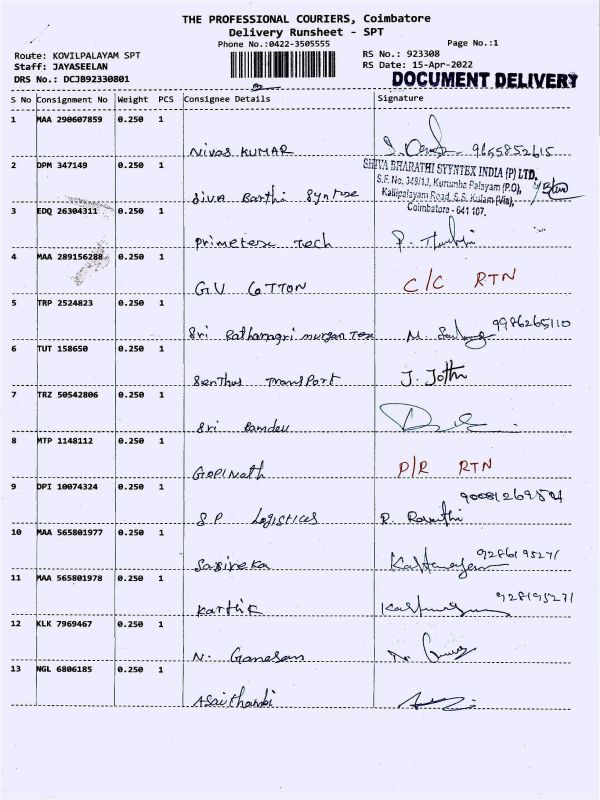 THE PROFESSIONAL COURIERS, Coimbatore
Delivery Runsheet - SPT
Phone No.:0422-3505555
Page No.:1
Route: KOVILPALAYAM SPT
RS No.: 923308
Staff: JAYASEELAN
RS Date: 15-Apr-2022
DRS No.: DCJB92330801
DOCUMENT DELIVERY
S No Consignment No Weight PCS Consignee Details Signature
1 MAA 290607859 0.250 1
Nivas KUMAR 9655852615
2 DPM 347149 0.250 1
SHIVA BHARATHI SYYNTEX INDIA (P) LTD,
S.F. No. 348/1J, Kurumba Palayam (P.O),
Kalipalayam Road, S.S. Kulam (Via),
Coimbatore - 641 107.
Siva Barthi Syntex
3 EDQ 26304311 0.250 1
primetex Tech
4 MAA 289156288 0.250 1
GV COTTON C/C RTN
5 TRP 2524823 0.250 1
Sri murgan Tex 9986265110
6 TUT 158650 0.250 1
Senthur Transport J. Jothi
7 TRZ 50542806 0.250 1
Sri Ramdev
8 MTP 1148112 0.250 1
GOPINath P/R RTN
9 DPI 10074324 0.250 1
S P Logistics R. Revathi
10 MAA 565801977 0.250 1
Sasireka
11 MAA 565801978 0.250 1
Karthik
12 KLK 7969467 0.250 1
N. Ganesan
13 NGL 6806185 0.250 1
Asaithambi